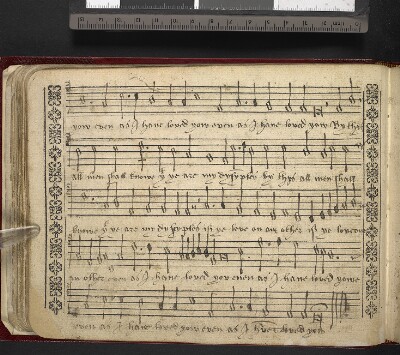 yow even as I have loved yow even as I have loved yow By thys
all men shall knowe y ye are my dysyples by thys all men shall
knowe y ye are my dysyples if ye love on an other if ye love on
an other even as I have loved yow even as I have loved yowe
even as I have loved yow even as I have loved yow